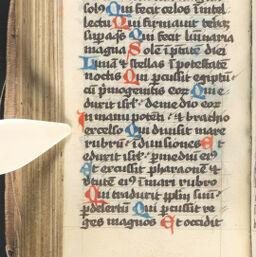 solꝰ Qui fecit celos ĩ intel
lectu Qui firmauit terã
sup aq̃s Qui fecit lũinaria
magna Solē ĩ ptãtē diei
Lunã & stellas ĩ potestatē
noctis Qui pcussit egiptũ
cũ pmogenitis eoꝝ Qui e
duxit isrl᾽ de medio eoꝝ
In manu potẽti ⁊ brachio
excelso Qui diuisit mare
rubrũ ĩ diuisiones Et
eduxit isrl᾽ p mediũ eiꝰ
Et excussit pharaonẽ &
ututẽ eiꝰ ĩ mari rubro
Qui traduxit pplm suũ
p desertũ Qui pcussit re
ges magnos Et occidit